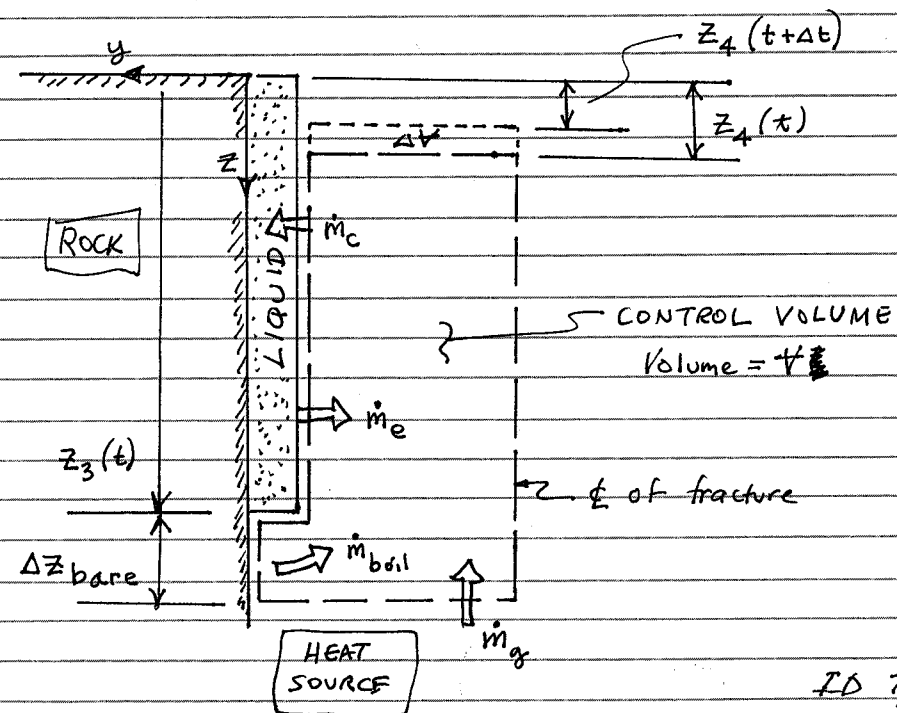 y
z₄(t+Δt)
z₄(t)
ΔV
z
ROCK
ṁ_c
LIQUID
CONTROL VOLUME
Volume = V
ṁ_e
z₃(t)
℄ of fracture
ṁ_boil
Δz_bare
ṁ_g
HEAT
SOURCE
ID